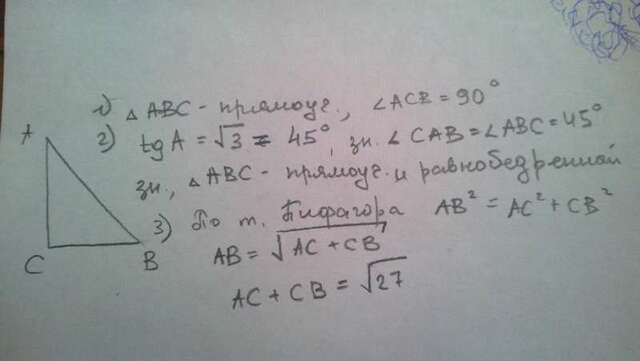 1) △ ABC - прямоуг., ∠ACB = 90°
A
2) tg A = √3 = 45°, зн. ∠ CAB = ∠ABC = 45°
зн., △ ABC - прямоуг. и равнобедренной
3) По т. Пифагора AB² = AC² + CB²
AB = √AC + CB
C B
AC + CB = √27